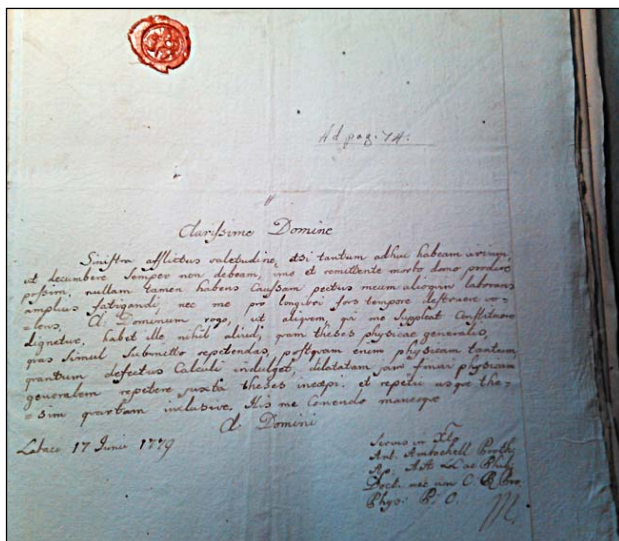 Ad pag. 74.
Clarissime Domine
Sinistra afflictus valetudine, etsi tantum adhuc habeam virium,
ut decumbere semper non debeam, imo et remittente morbo domo prodire
possim, nullam tamen habens Caussam pectus meum alioquin laborans
amplius fatigandi, nec me pro longiori fors tempore destruere vo-
=lens, Cl. Dominum rogo, ut aliquem, qui me suppleat Constituere
dignetur, habet ille nihil aliud, quam theses physicae generalis,
quas simul submitto repetendas, postquam enim physicam tantum
quantum defectus Calculi indulget, dictatam jam finivi physicam
generalem repetere juxta theses incepi, et repetii usque the-
=sim quartam inclusive. His me Comendo maneoque
Cl. Domini
Labaco 17 Junii 1779
Servus in Xto
Ant. Ambschell
AA. LL. ac Phil.
Doct. nec non
Phys. P. O.